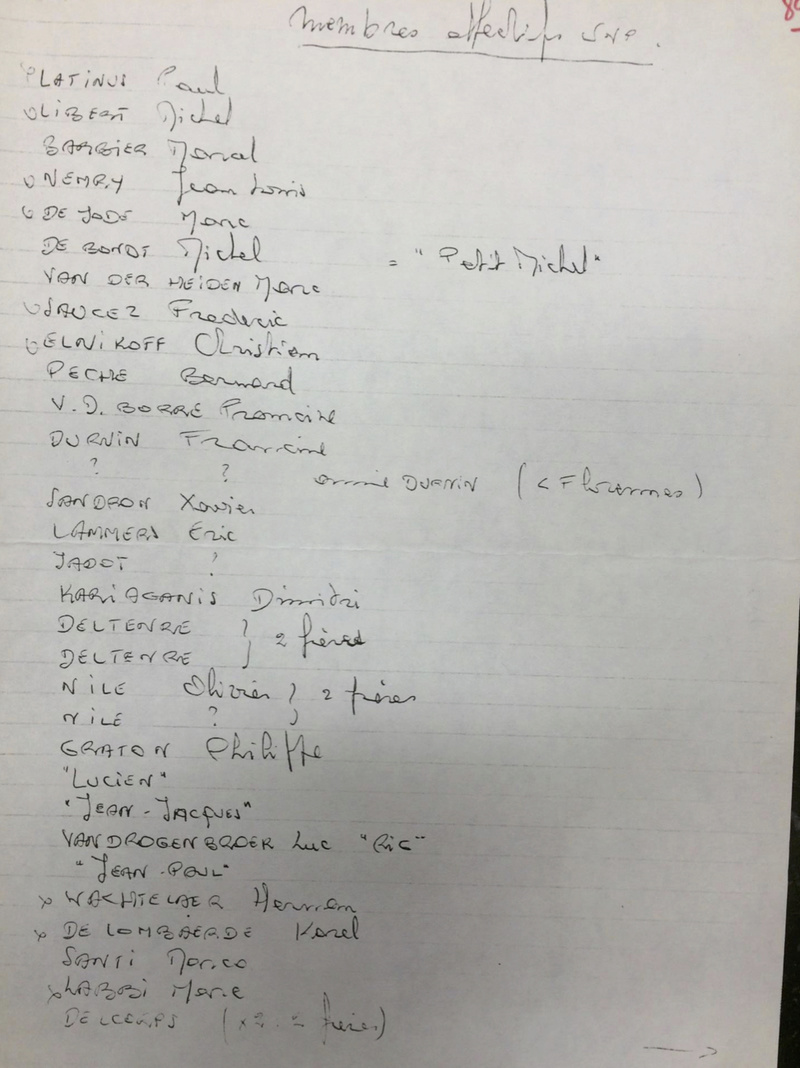 membres effectifs WNP.
PLATINUS Paul
LIBERT Michel
BARBIER Marcal
NEMRY Jean Louis
DE JODE Marc
DE BONDT Michel = "Petit Michel"
VAN DER HEIDEN Marc
SAUCEZ Frederic
ELNIKOFF Christian
PECHE Bernard
V.D. BORRE Francine
DURNIN Francine
? ? amie DURNIN (< Florennes)
SANDRON Xavier
LAMMERS Eric
JADOT ?
KARIAGANIS Dimitri
DELTENRE } 2 frères
DELTENRE
NILE Olivier } 2 frères
NILE ?
GRATON Philippe
"LUCIEN"
"JEAN-JACQUES"
VANDROGENBROER Luc "Ric"
"JEAN-PAUL"
x WACHTELAER Herman
x DE LOMBAERDE Karel
SANTI Marco
x LABBI Marc
(x2. 2 frères)